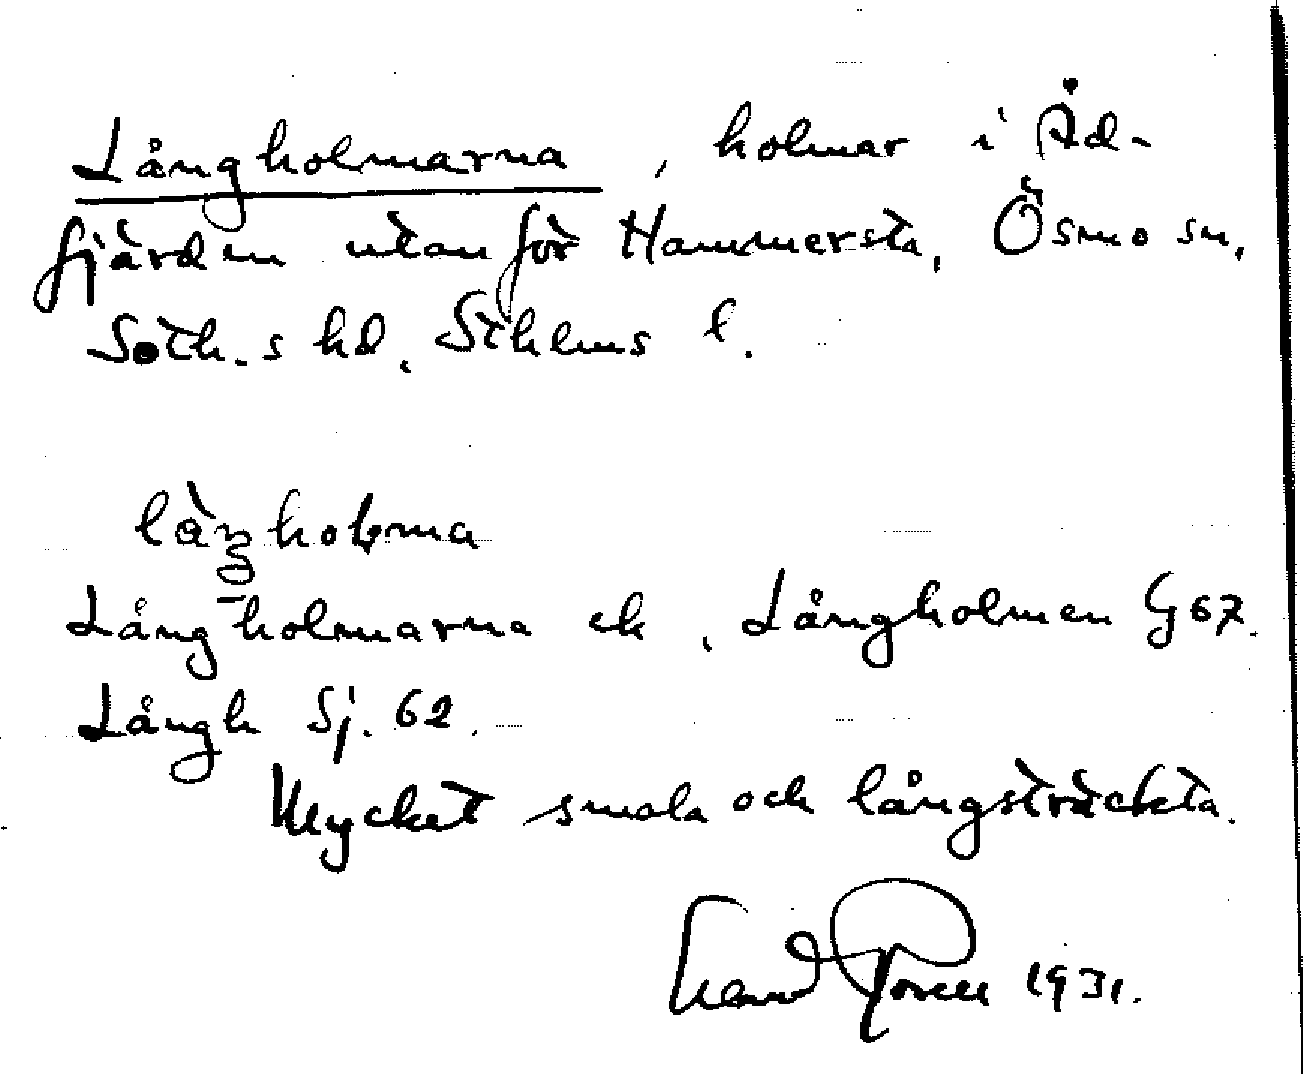 Långholmarna, holmar i Åd-
fjärden utanför Hammersta, Ösmo sn,
Soth.s hd. Sthlms l.
Långholmarna ek, Långholmen G 67.
Långh Sj. 62.
Mycket smala och långsträckta.
1931.